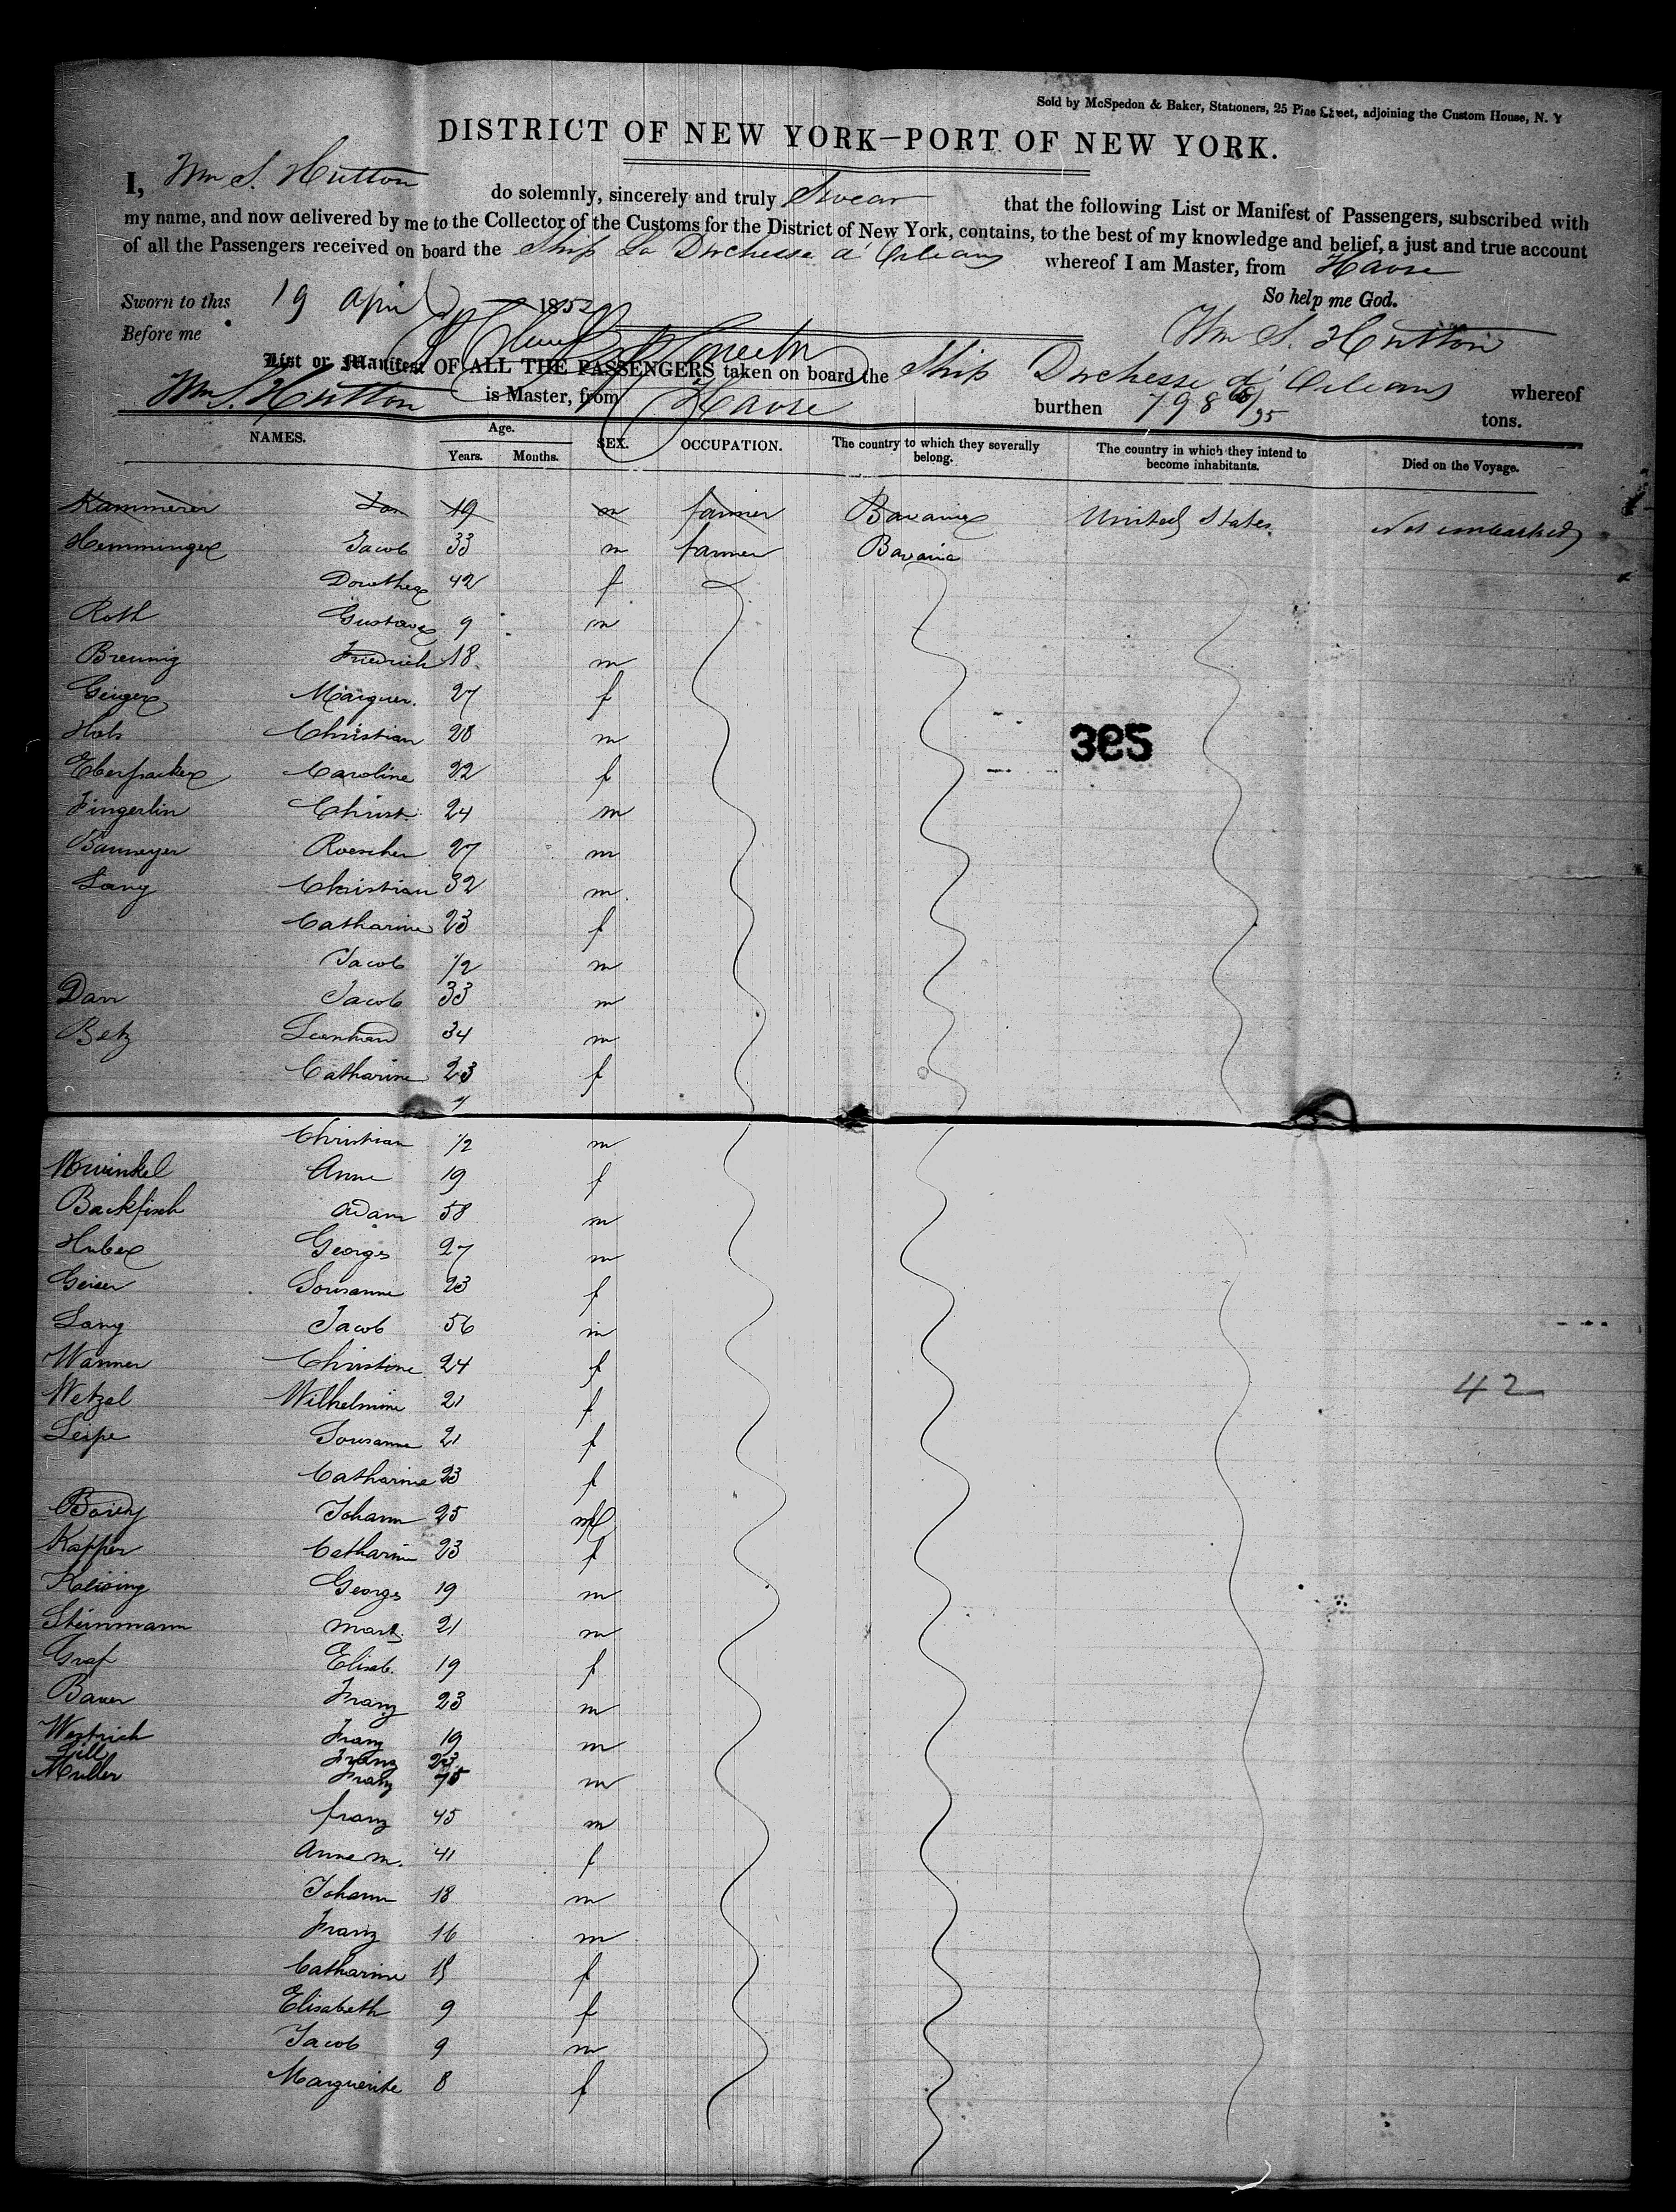 Sold by McSpedon & Baker, Stationers, 25 Pine Street, adjoining the Custom House, N. Y
DISTRICT OF NEW YORK—PORT OF NEW YORK.
I, Wm S. Hutton do solemnly, sincerely and truly Swear that the following List or Manifest of Passengers, subscribed with
my name, and now delivered by me to the Collector of the Customs for the District of New York, contains, to the best of my knowledge and belief, a just and true account
of all the Passengers received on board the Ship La Duchesse d'Orleans whereof I am Master, from Havre
Sworn to this 19 April 1852 So help me God.
Before me Wm S. Hutton
List or Manifest OF ALL THE PASSENGERS taken on board the Ship Duchesse d'Orleans whereof
Wm S. Hutton is Master, from Havre burthen 798 /95 tons.
NAMES. Age. Years. Months. SEX. OCCUPATION. The country to which they severally belong. The country in which they intend to become inhabitants. Died on the Voyage.
Kammerer 19 m farmer Bavaria United States Not embarked
Hemminger Jacob 33 m farmer Bavaria
Dorothea 42 f
Roth Gustave 9 m
Brennig Friedrich 18 m
Geiger Marguer. 27 f
Christian 28 m
Caroline 22 f
365
Fingerlin Christ. 24 m
Baumeyer 27 m
Lang Christian 32 m
Catharine 23 f
Jacob 1/2 m
Jacob 33 m
Betz Leonhard 34 m
Catharine 23 f
Christian 1/2 m
Anne 19 f
Backfisch Adam 58 m
Huber Georges 27 m
Geiser Sousanne 23 f
Lang Jacob 56 m
Wanner Christine 24 f
Wetzel Wilhelmine 21 f
42
Leipe Sousanne 21 f
Catharine 23 f
Johann 25
Kapper Catharine 23 f
Georges 19 m
Steinmann Mark. 21 m
Graf Elisab. 19 f
Bauer Franz 23 m
Westrich Franz 19 m
Lill Franz 23
Muller Franz 75 m
franz 45 m
Anne m. 41 f
Johann 18 m
Franz 16 m
Catharine 15 f
Elisabeth 9 f
Jacob 9 m
Marguerite 8 f